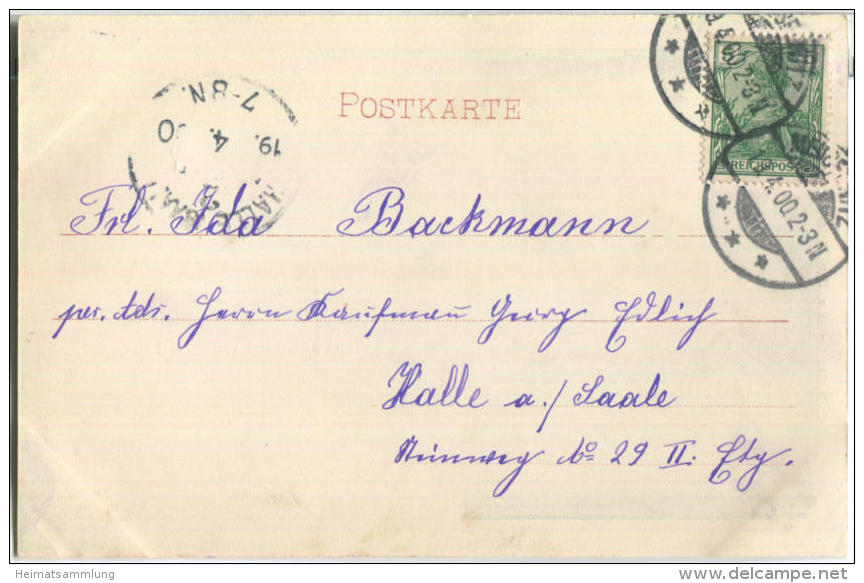 POSTKARTE
19. 4. 00
7-8N.
REICHSPOST
00. 2-3N
Frl. Ida Backmann
per. Ads. Herrn Kaufmann Georg Edlich
Halle a./Saale
Steinweg No 29 II. Etg.
Heimatsammlung
www.delcampe.net